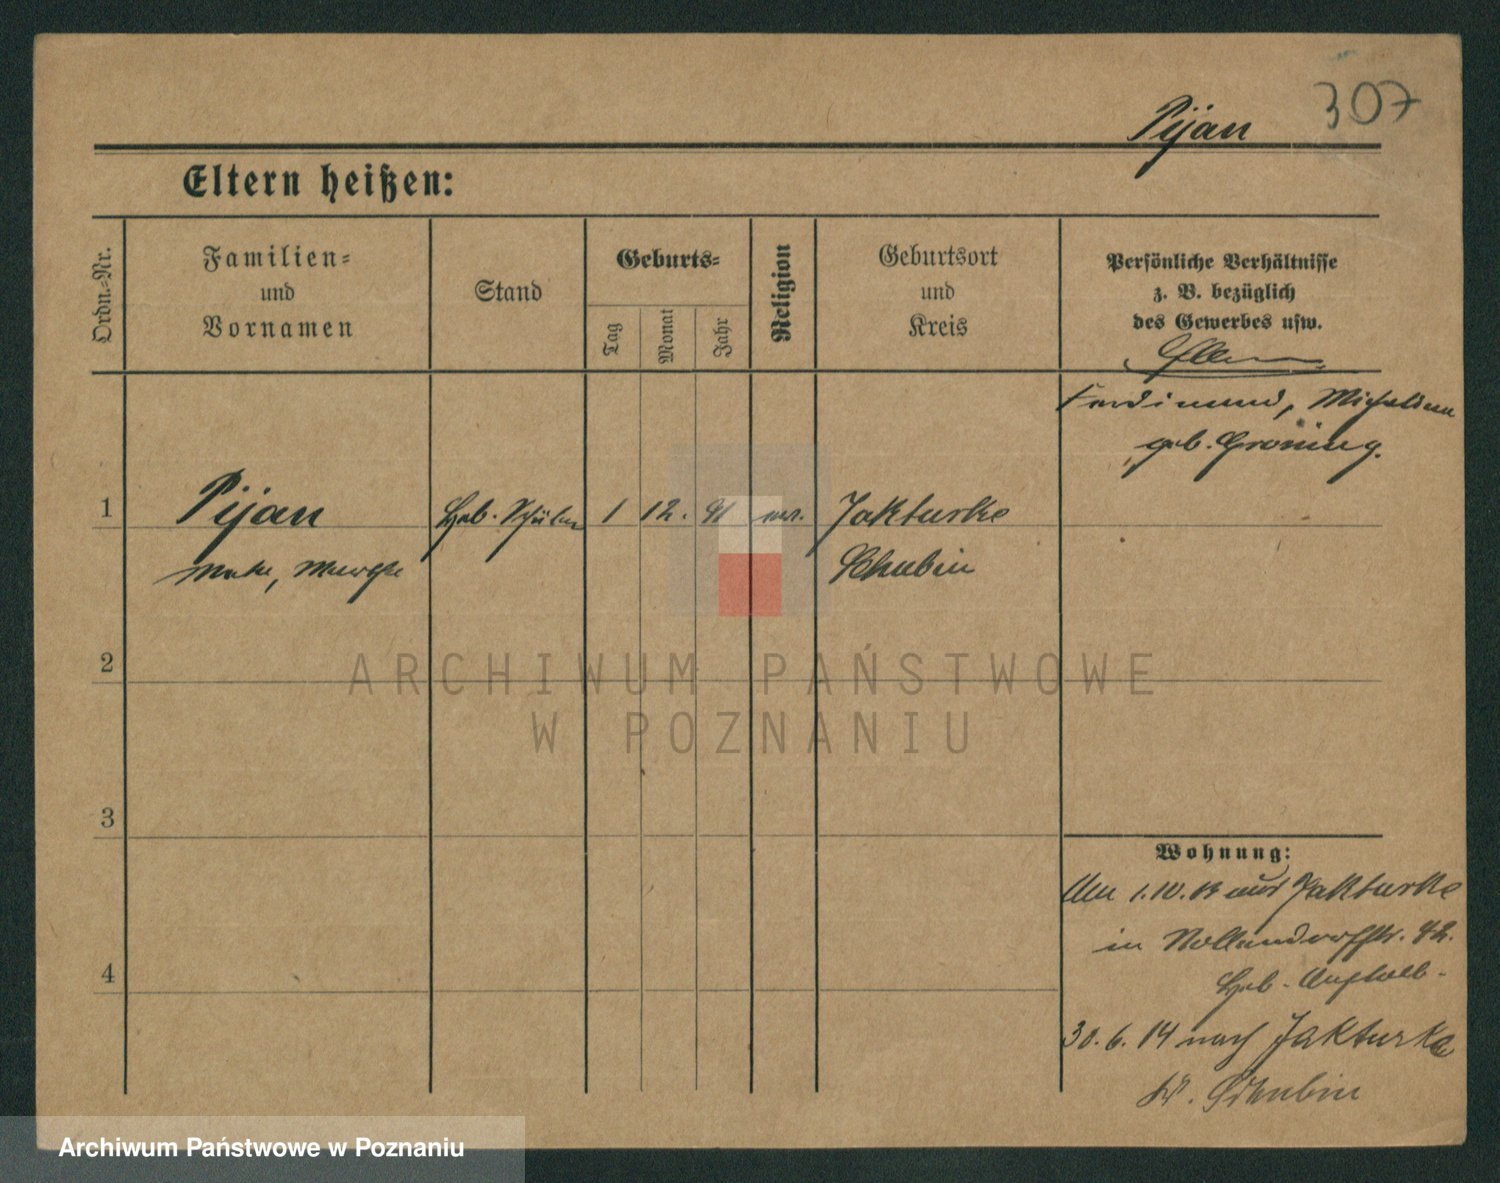 307
Pijan
Eltern heißen:
Ordn.-Nr.
Familien-
und
Vornamen
Stand
Geburts-
Tag
Monat
Jahr
Religion
Geburtsort
und
Kreis
Persönliche Verhältnisse
z. B. bezüglich
des Gewerbes usw.
Eltern
Ferdinand, Michalina
geb. Gröning.
1
Pijan
Heb. Schüler
1
12.
91
ev.
Jakturke
Schubin
2
3
4
Wohnung:
Am 1.10.13 aus Jakturke
in Nollendorffstr. 42.
Heb.
30. 6. 14 nach Jakturke
Kr. Schubin
ARCHIWUM PAŃSTWOWE
W POZNANIU
Archiwum Państwowe w Poznaniu